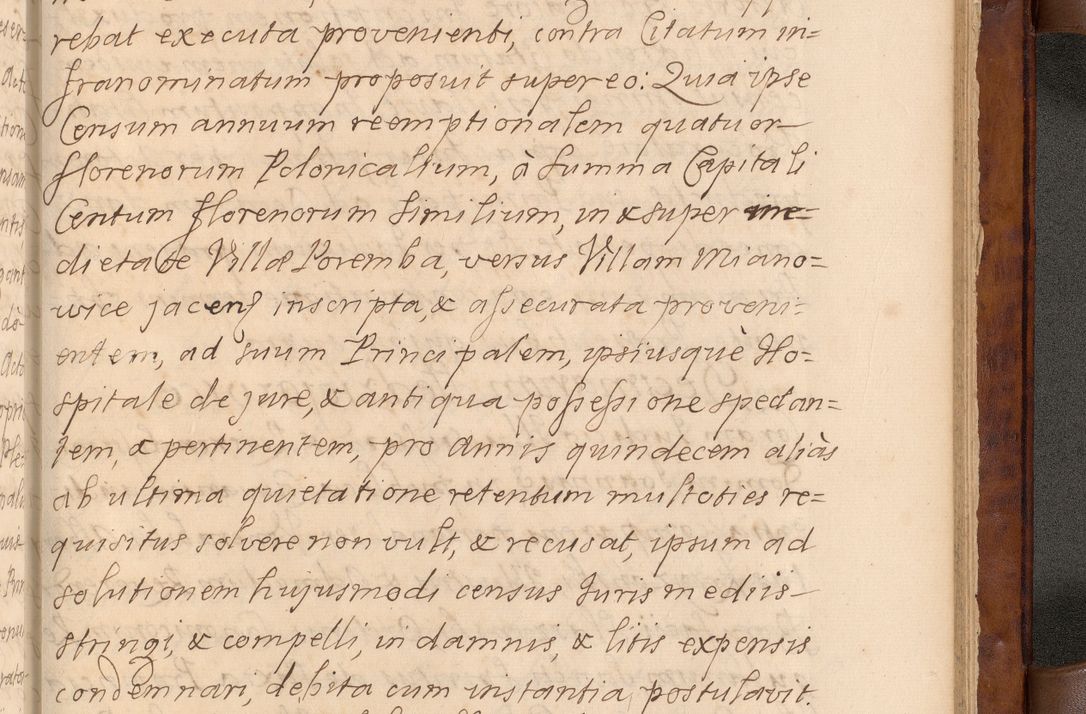 rebat executa provenienti, contra Citatum in=
franominatum proposuit super eo: Quia ipse
Censum annuum reemptionalem quatuor
florenorum Polonicalium, à Summa Capitali
Centum florenorum Similium, in & super me=
dietate Villæ Poremba, versus Villam Miano=
wice jacens inscripta, & assecurata proveni=
entem, ad suum Principalem, ipsiusquè Ho=
spitale de jure, & antiqua possessione spectan=
tem, & pertinentem, pro annis quindecem aliàs
ab ultima quietatione retentum multoties re=
quisitus solvere non vult, & recusat, ipsum ad
Solutionem hujusmodi census Juris mediis
stringi, & compelli, in damnis, & litis expensis
condemnari, debita cum instantia postulavit.